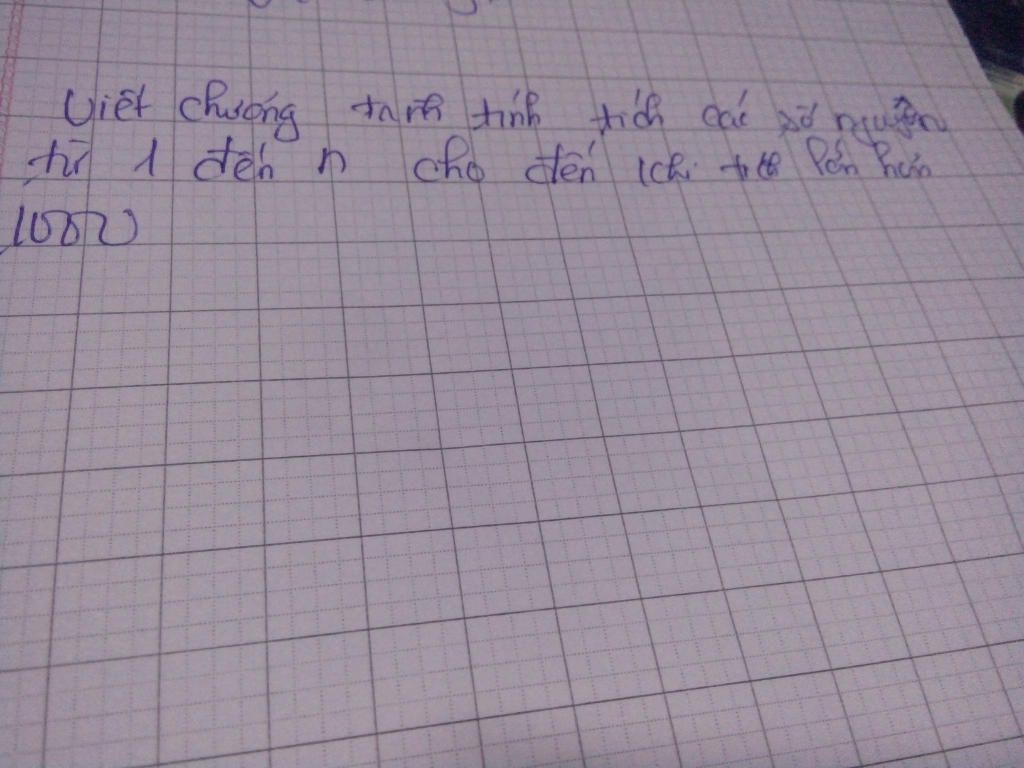 Viết chương trình tính tích các số nguyên
từ 1 đến n cho đến khi lớn hơn
1000